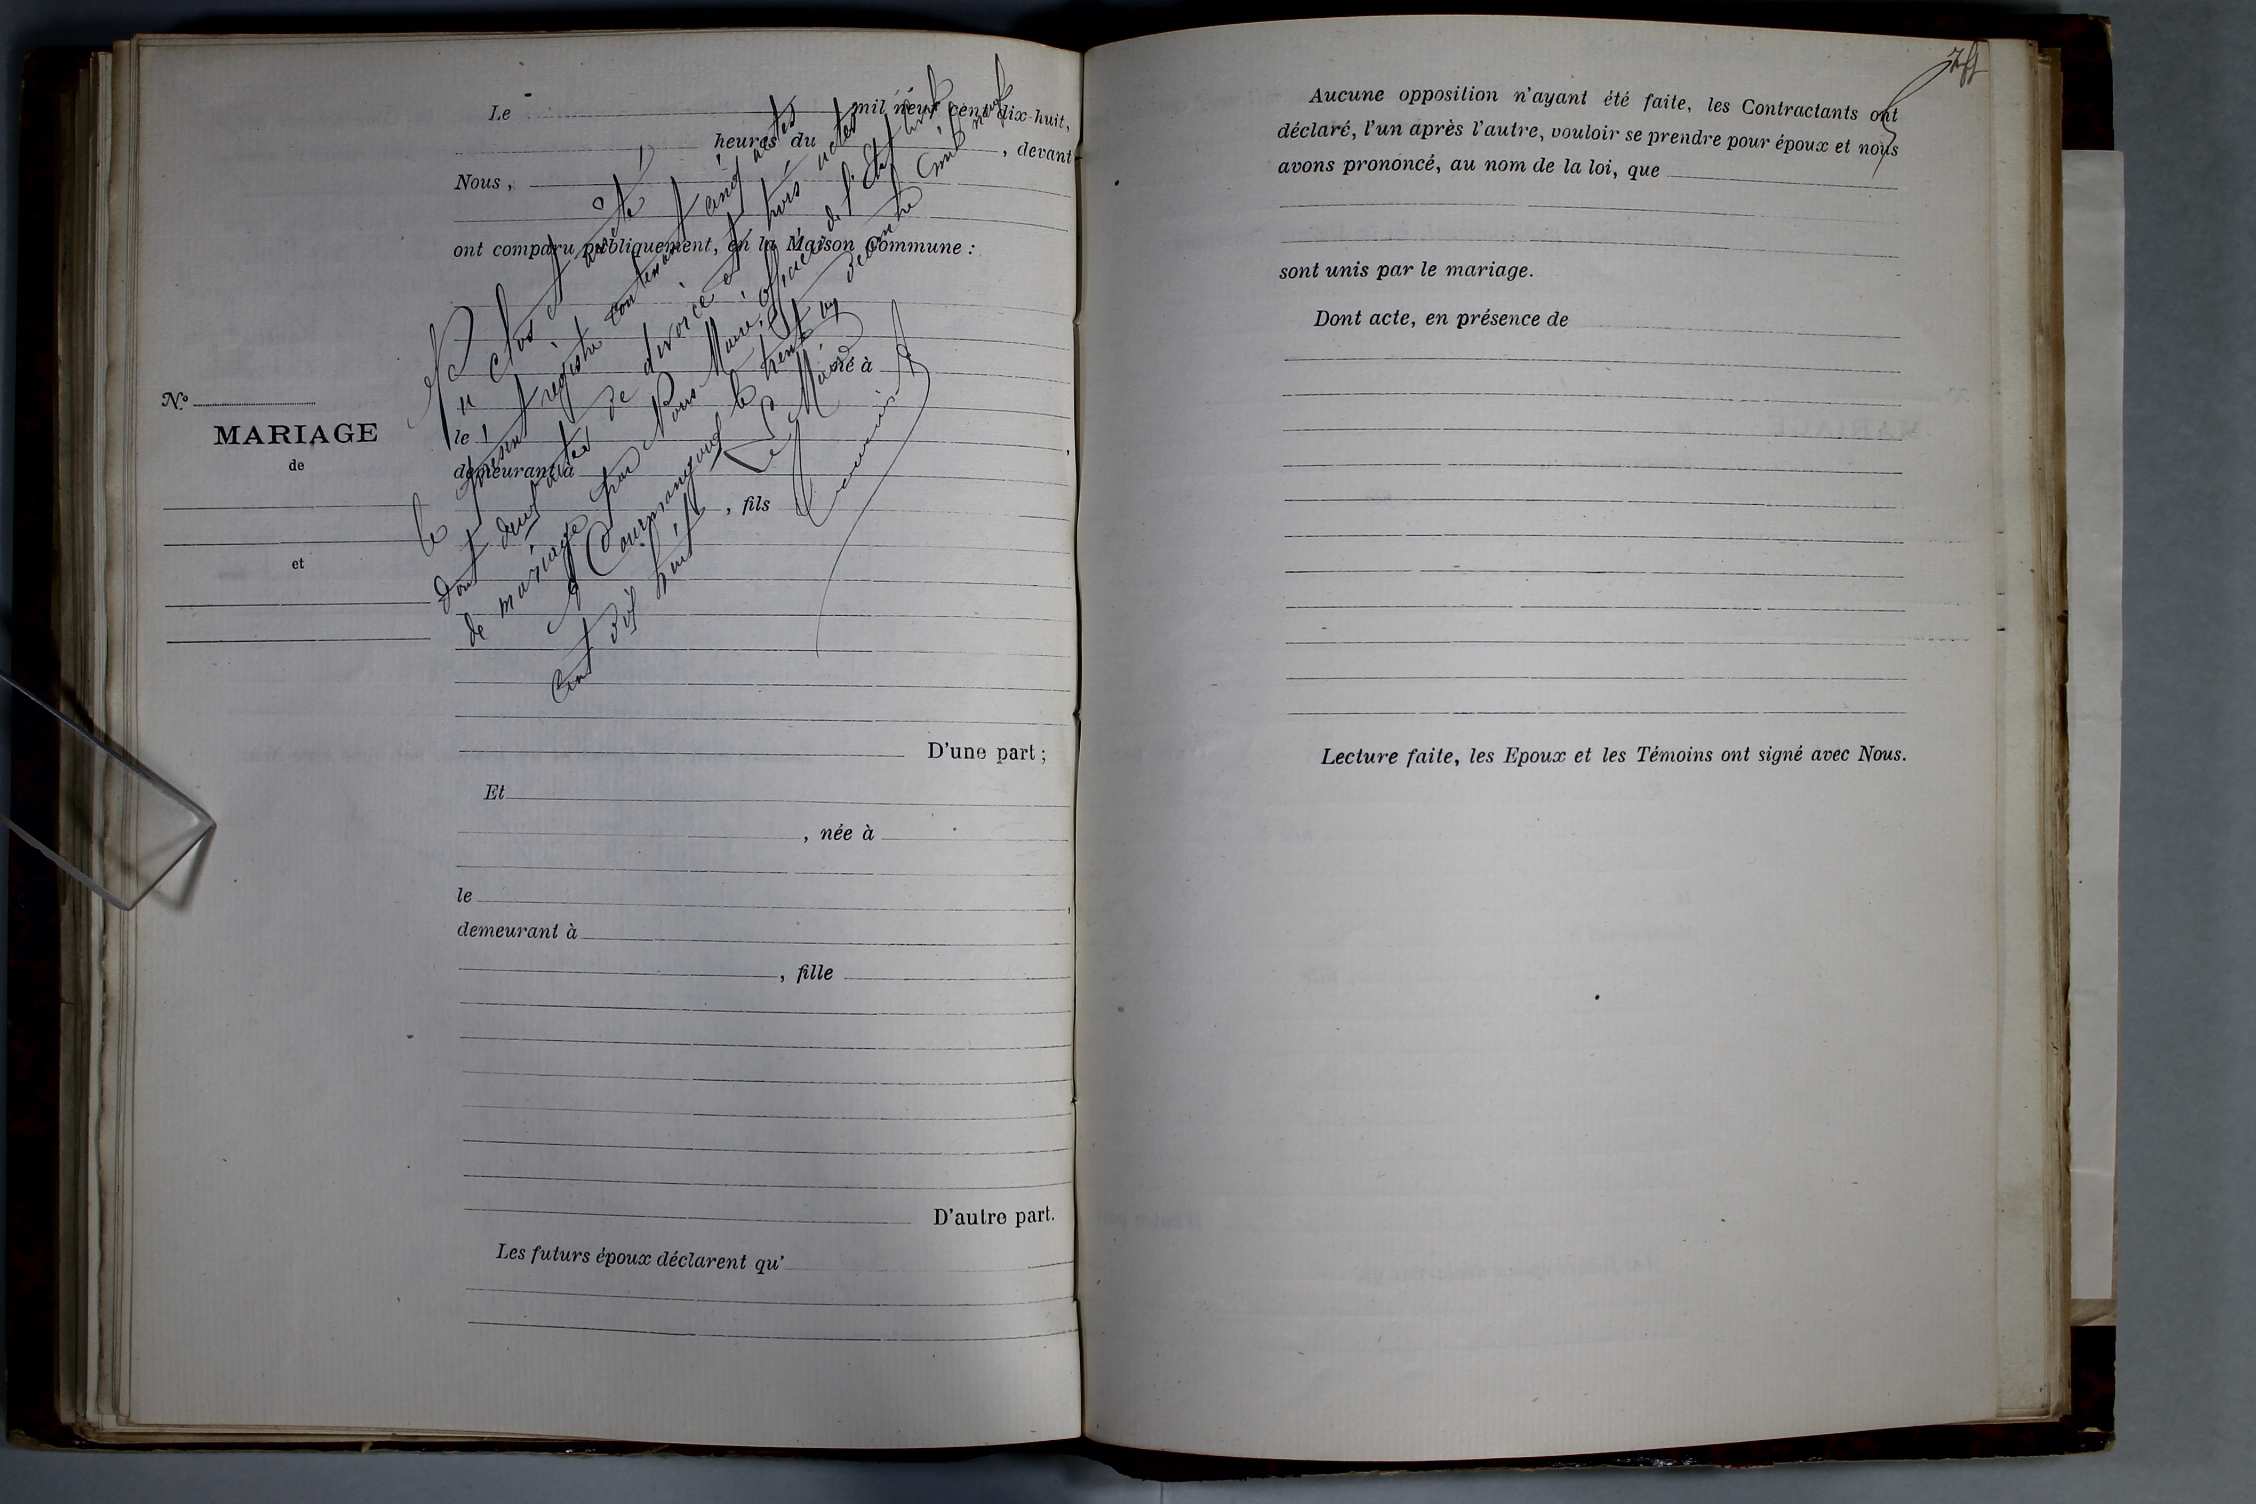 Le mil neuf cent dix-huit,
heures du , devant
Nous,
ont comparu publiquement, en la Maison Commune :
clos et arrêté
le présent registre contenant cinq actes
dont deux actes de divorce et trois actes
de mariage par Nous Maire, officier de l'état civil
de Courmangoux le trente un décembre mil neuf
cent dix huit
Le Maire
né à
le
demeurant à
, fils
N°
MARIAGE
de
et
D'une part ;
Et
, née à
le ,
demeurant à
, fille
D'autre part.
Les futurs époux déclarent qu'
Aucune opposition n'ayant été faite, les Contractants ont
déclaré, l'un après l'autre, vouloir se prendre pour époux et nous
avons prononcé, au nom de la loi, que
sont unis par le mariage.
Dont acte, en présence de
Lecture faite, les Epoux et les Témoins ont signé avec Nous.